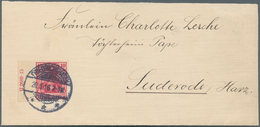 Fräulein Charlotte Lerche
Töchterheim Pape
Suderode, Harz.